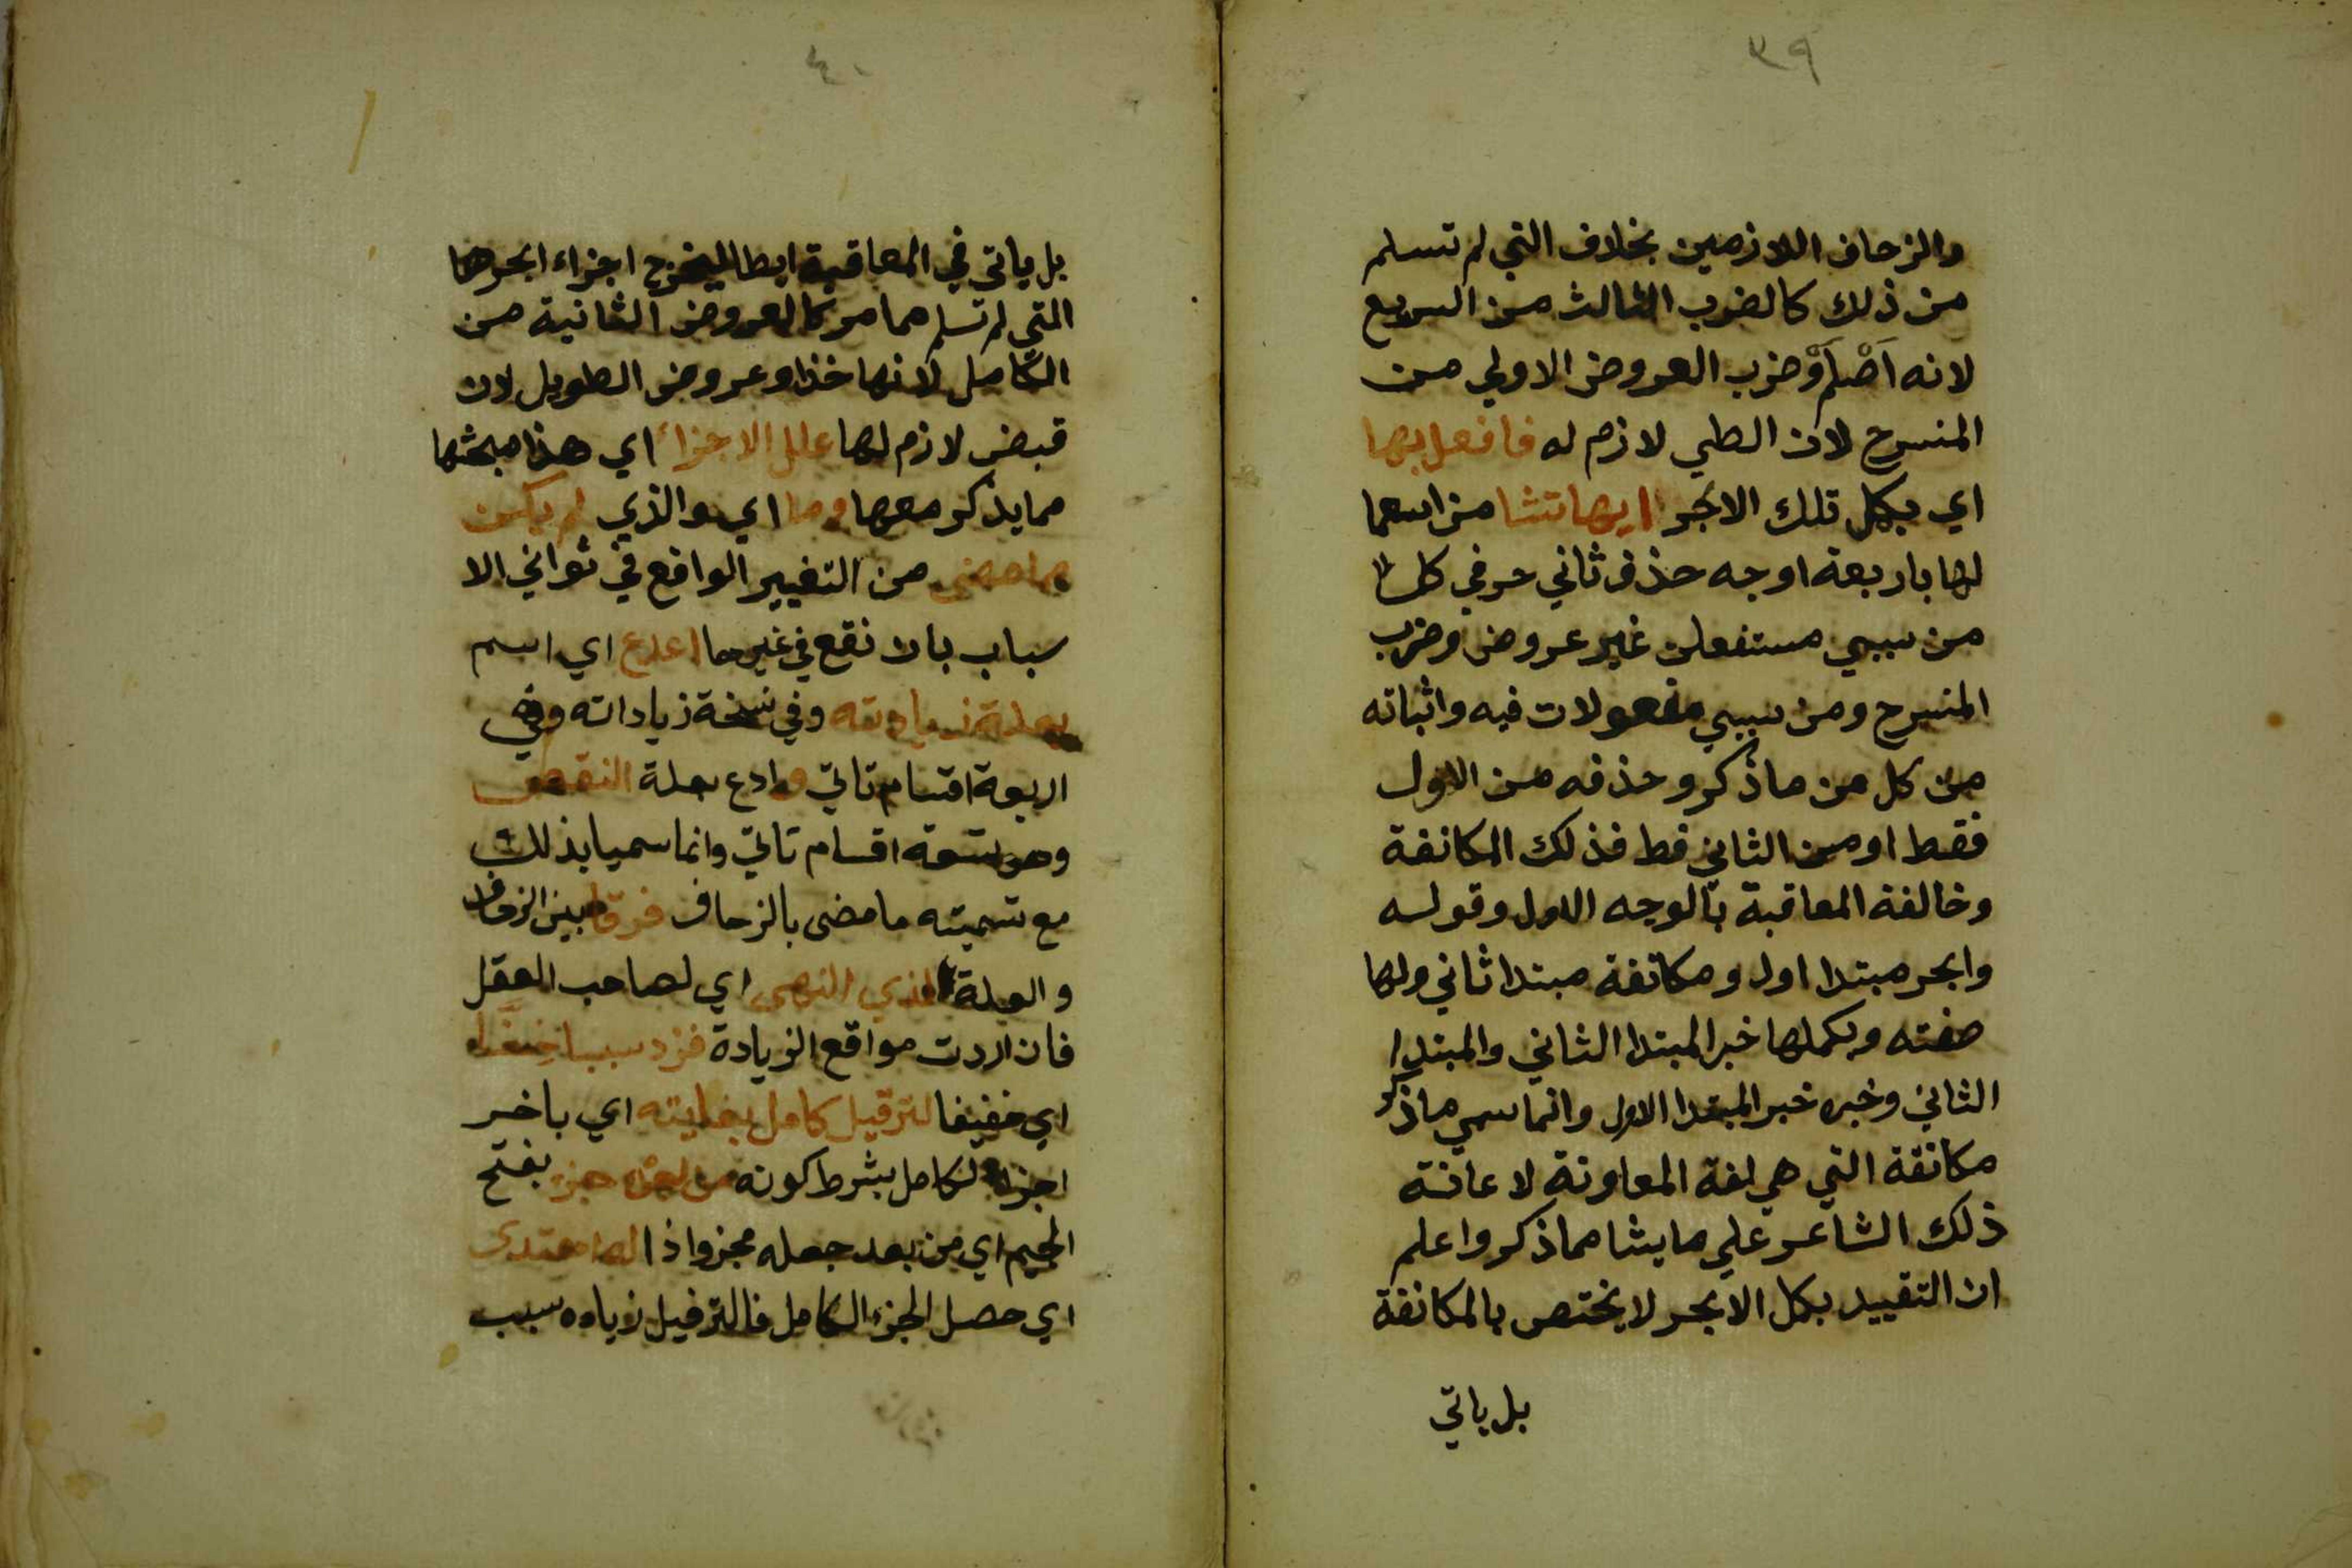 ٣٩
والزحاف اللازمين بخلاف التي لم تسلم
من ذلك كالضرب الثالث من السريع
لانه اَصْلَم وَضرب العروض الاولي من
المنسرح لان الطي لازم له فافعل بها
اي بكل تلك الابحر ايها تشا من اسما
لها باربعة اوجه حذف ثاني حرفي كل
من سببي مستفعلن غير عروض وضرب
المنسرح ومن سببي مفعولات فيه واثباته
من كل من ما ذكر وحذفه من الاول
فقط او من الثاني فقط فذلك المكانفة
وخالفة المعاقبة بالوجه الاول وقوله
وابحر مبتدا اول ومكانفة مبتدا ثاني ولها
صفته وبكملها خبر المبتدا الثاني والمبتدا
الثاني وخبره خبر المبتدا الاول وانما سمي ما ذكر
مكانفة التي هي لغة المعاونة لاعانة
ذلك الشاعر علي ما يشا مما ذكر واعلم
ان التقييد بكل الابحر لا يختص بالمكانفة
بل ياتي
٤٠
بل ياتي في المعاقبة ايضا ليخرج اجزاء ابحرها
التي لم تسلم مما مر كالعروض الثانية من
الكامل لانها حذا وعروض الطويل لان
قبض لازم لها علل الاجزاء اي هذا مبحثها
مما يذكر معها وما اي والذي لم يكن
مما مضى من التغيير الواقع في ثواني الا
سباب بان نقع في غيرها ادع اي اسم
بعلة زيادته وفي نسخة زياداته وهي
اربعة اقسام تاتي وادع بعلة النقص
وهو تسعة اقسام تاتي وانما سميا بذلك
مع تسميته ما مضى بالزحاف فرقا بين الزحاف
والعلة لذي النهى اي لصاحب العقل
فان اردت مواقع الزيادة فزد سببا خفا
اي خفيفا لترفيل كامل بغايته اي باخير
اجزاء الكامل بشرط كونه من بعد جزء بفتح
الجيم اي من بعد جعله مجزوا ذا له اهتدى
اي حصل الجزء الكامل فالترفيل زياده سبب